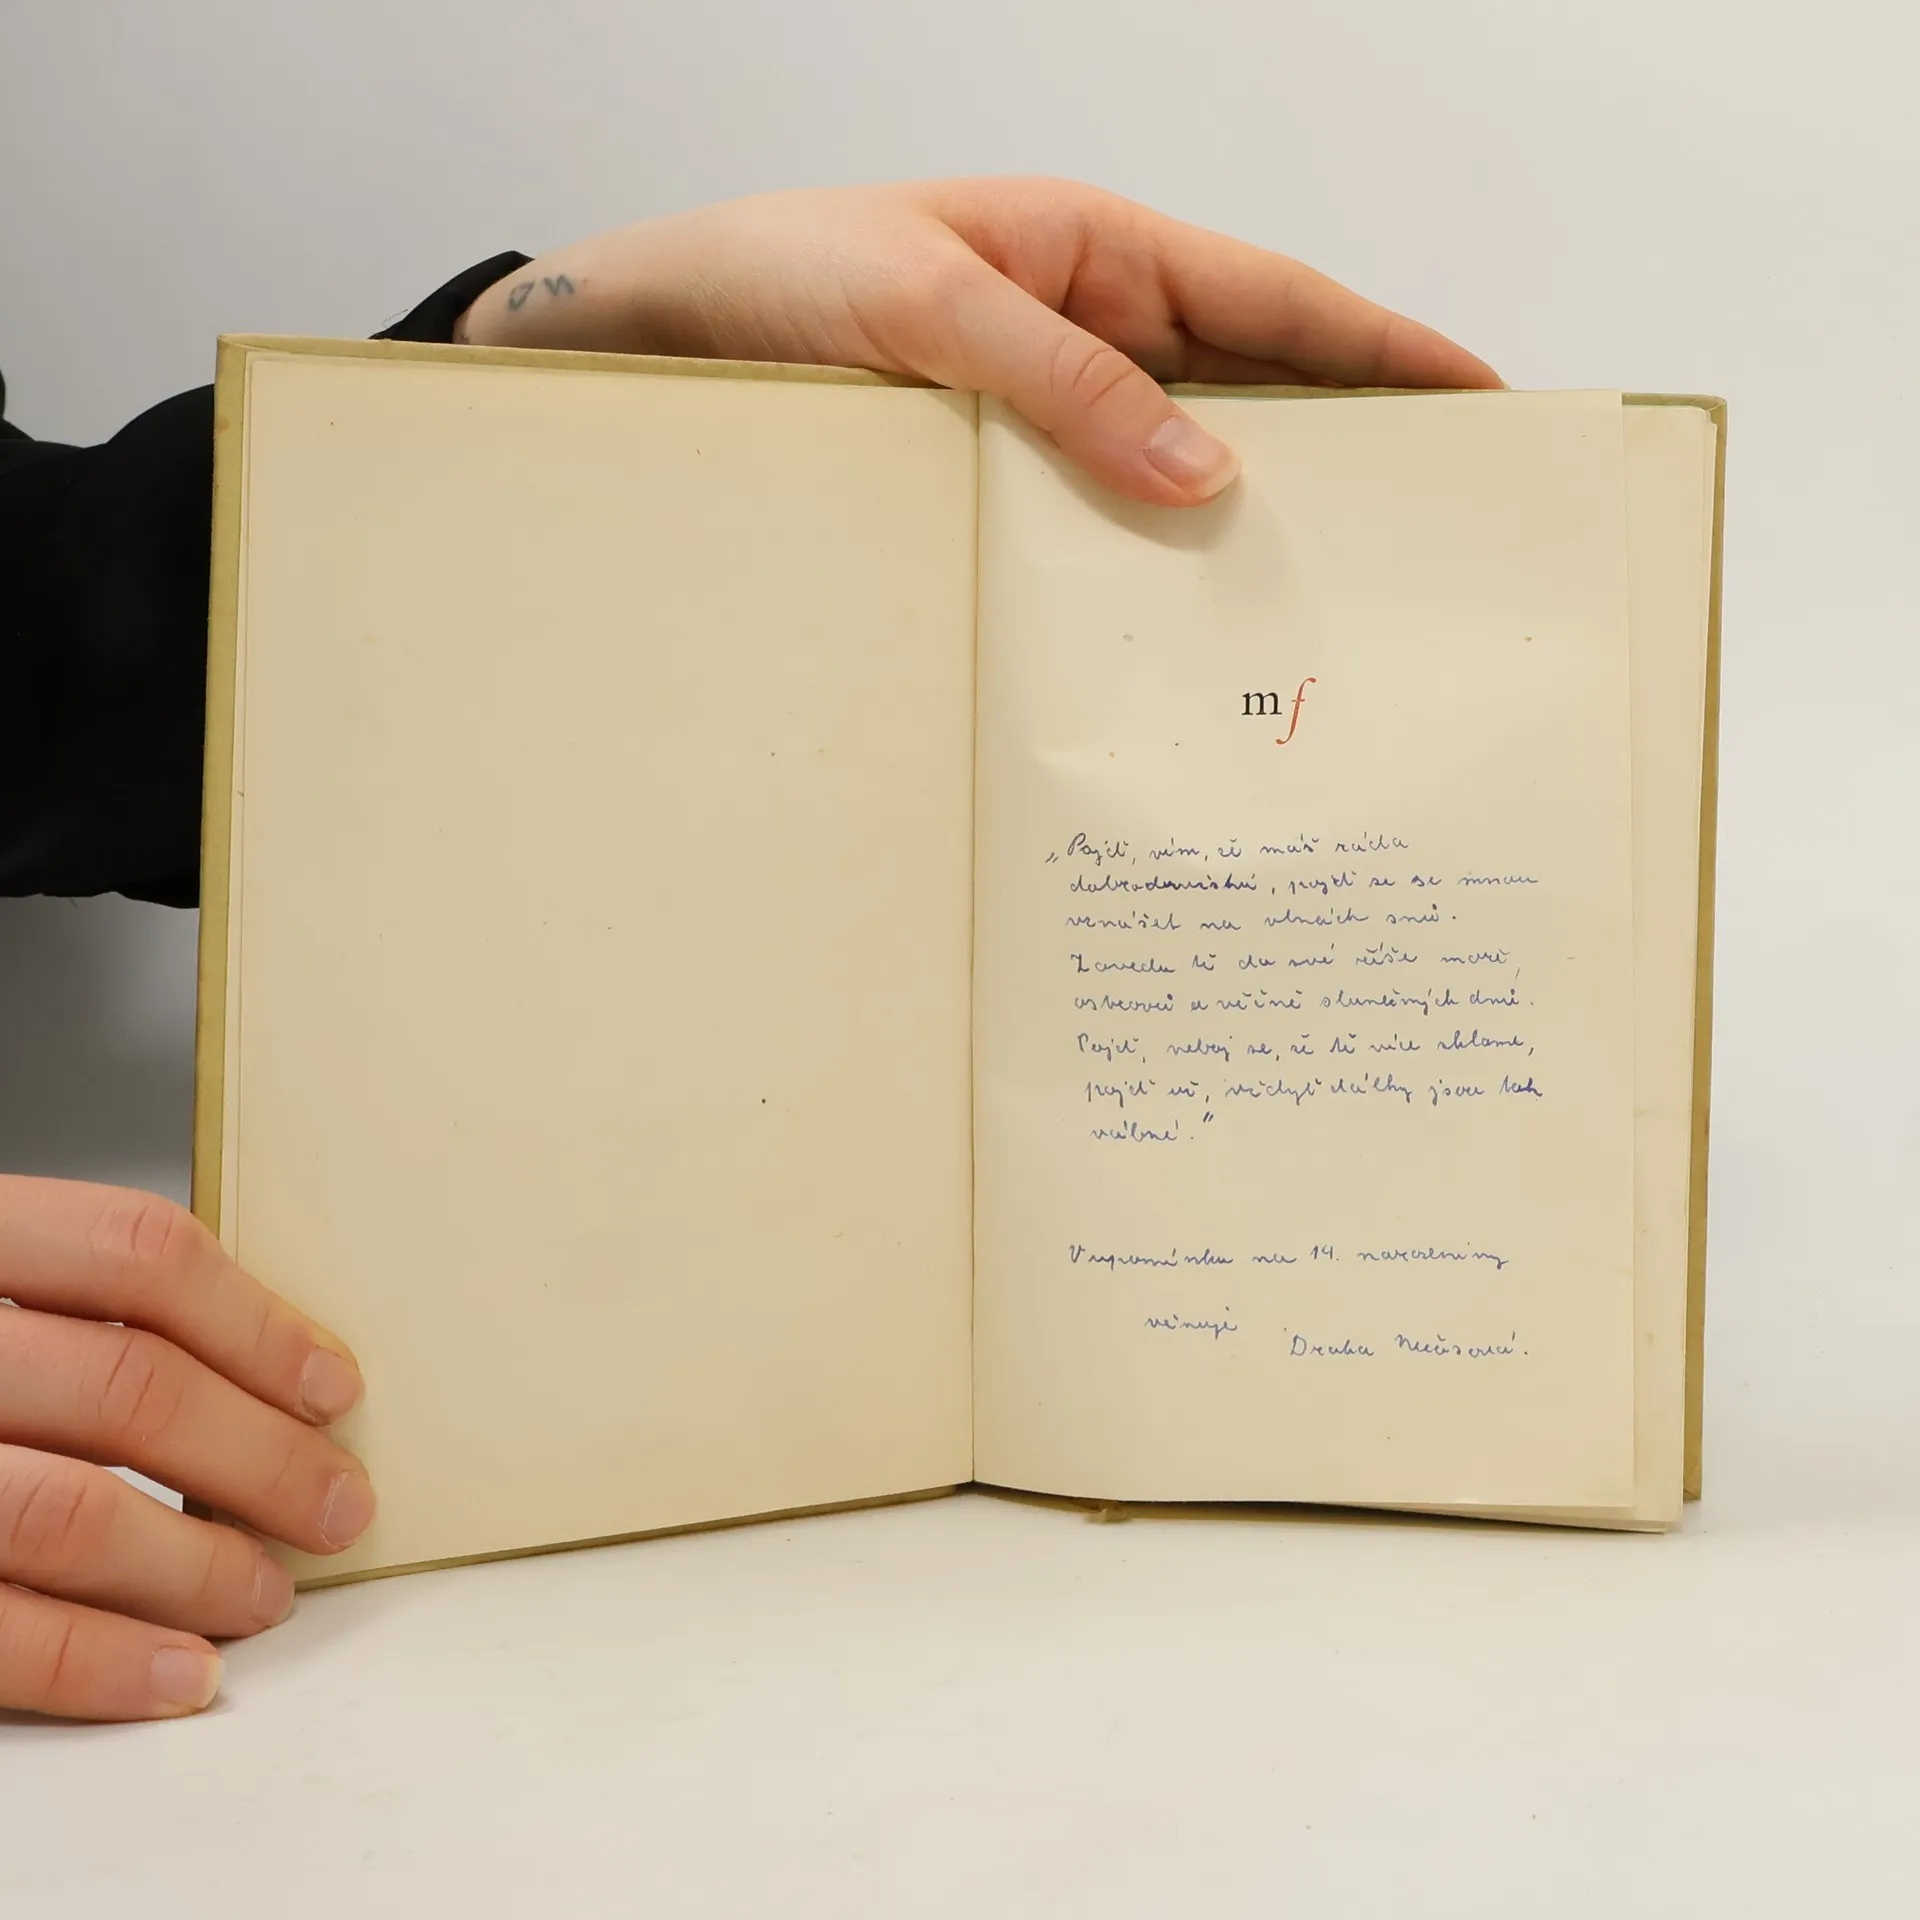 mf
„Pojď, vím, že máš ráda
dobrodružství, pojď se se mnou
vznášet na vlnách snů.
Zavedu tě do své říše moří,
ostrovů a věčně slunečných dnů.
Pojď, neboj se, že tě více zklame,
pojď už, vždyť dálky jsou tak
vábné."
V upomínku na 14. narozeniny
věnuje
Draha